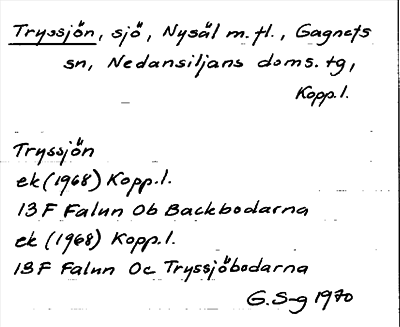 Tryssjön, sjö, Nysäl m.fl., Gagnefs
sn, Nedansiljans doms. tg,
Kopp.l.
Tryssjön
ek (1968) Kopp.l.
13F Falun 0b Backbodarna
ek (1968) Kopp.l.
13F Falun 0c Tryssjöbodarna
G.S-g 1970